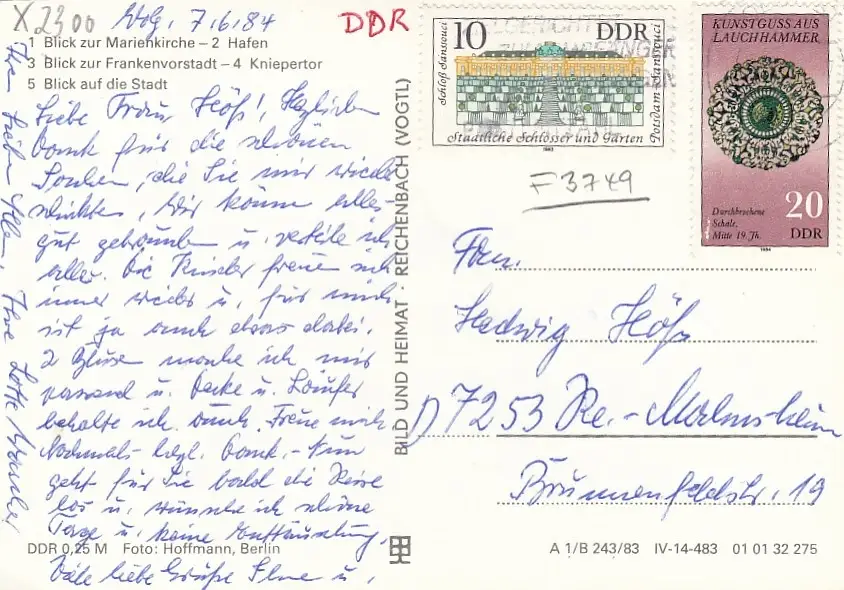 X 2300
Wolg. 7.6.84
DDR
1 Blick zur Marienkirche – 2 Hafen
3 Blick zur Frankenvorstadt – 4 Kniepertor
5 Blick auf die Stadt
Liebe Frau Höß! Herzlichen
Dank für die schönen
Sachen, die Sie mir wieder
schickten. Wir können alles
gut gebrauchen u. verteile ich
alles. Die Kinder freuen sich
immer wieder u. für mich
ist ja auch etwas dabei.
2 Blusen mache ich mir
passend u. Decke u. Läufer
behalte ich auch. Freue mich
Nochmals hzl. Dank. – Nun
geht für Sie bald die Reise
los u. wünsche ich schöne
Tage u. keine Enttäuschung.
Viele liebe Grüße Ihne u.
Ihre Lotte
DDR 0,25 M Foto: Hoffmann, Berlin
BILD UND HEIMAT · REICHENBACH (VOGTL)
10 DDR
Schloß Sanssouci
Potsdam-Sanssouci
Staatliche Schlösser und Gärten
1983
KUNSTGUSS AUS
LAUCHHAMMER
Durchbrochene
Schale,
Mitte 19. Jh.
20
DDR
1984
F 3749
Frau
Hedwig Höß
D 7253 Re.-Malmsheim
Brunnenfeldstr. 19
A 1/B 243/83 IV-14-483 01 01 32 275